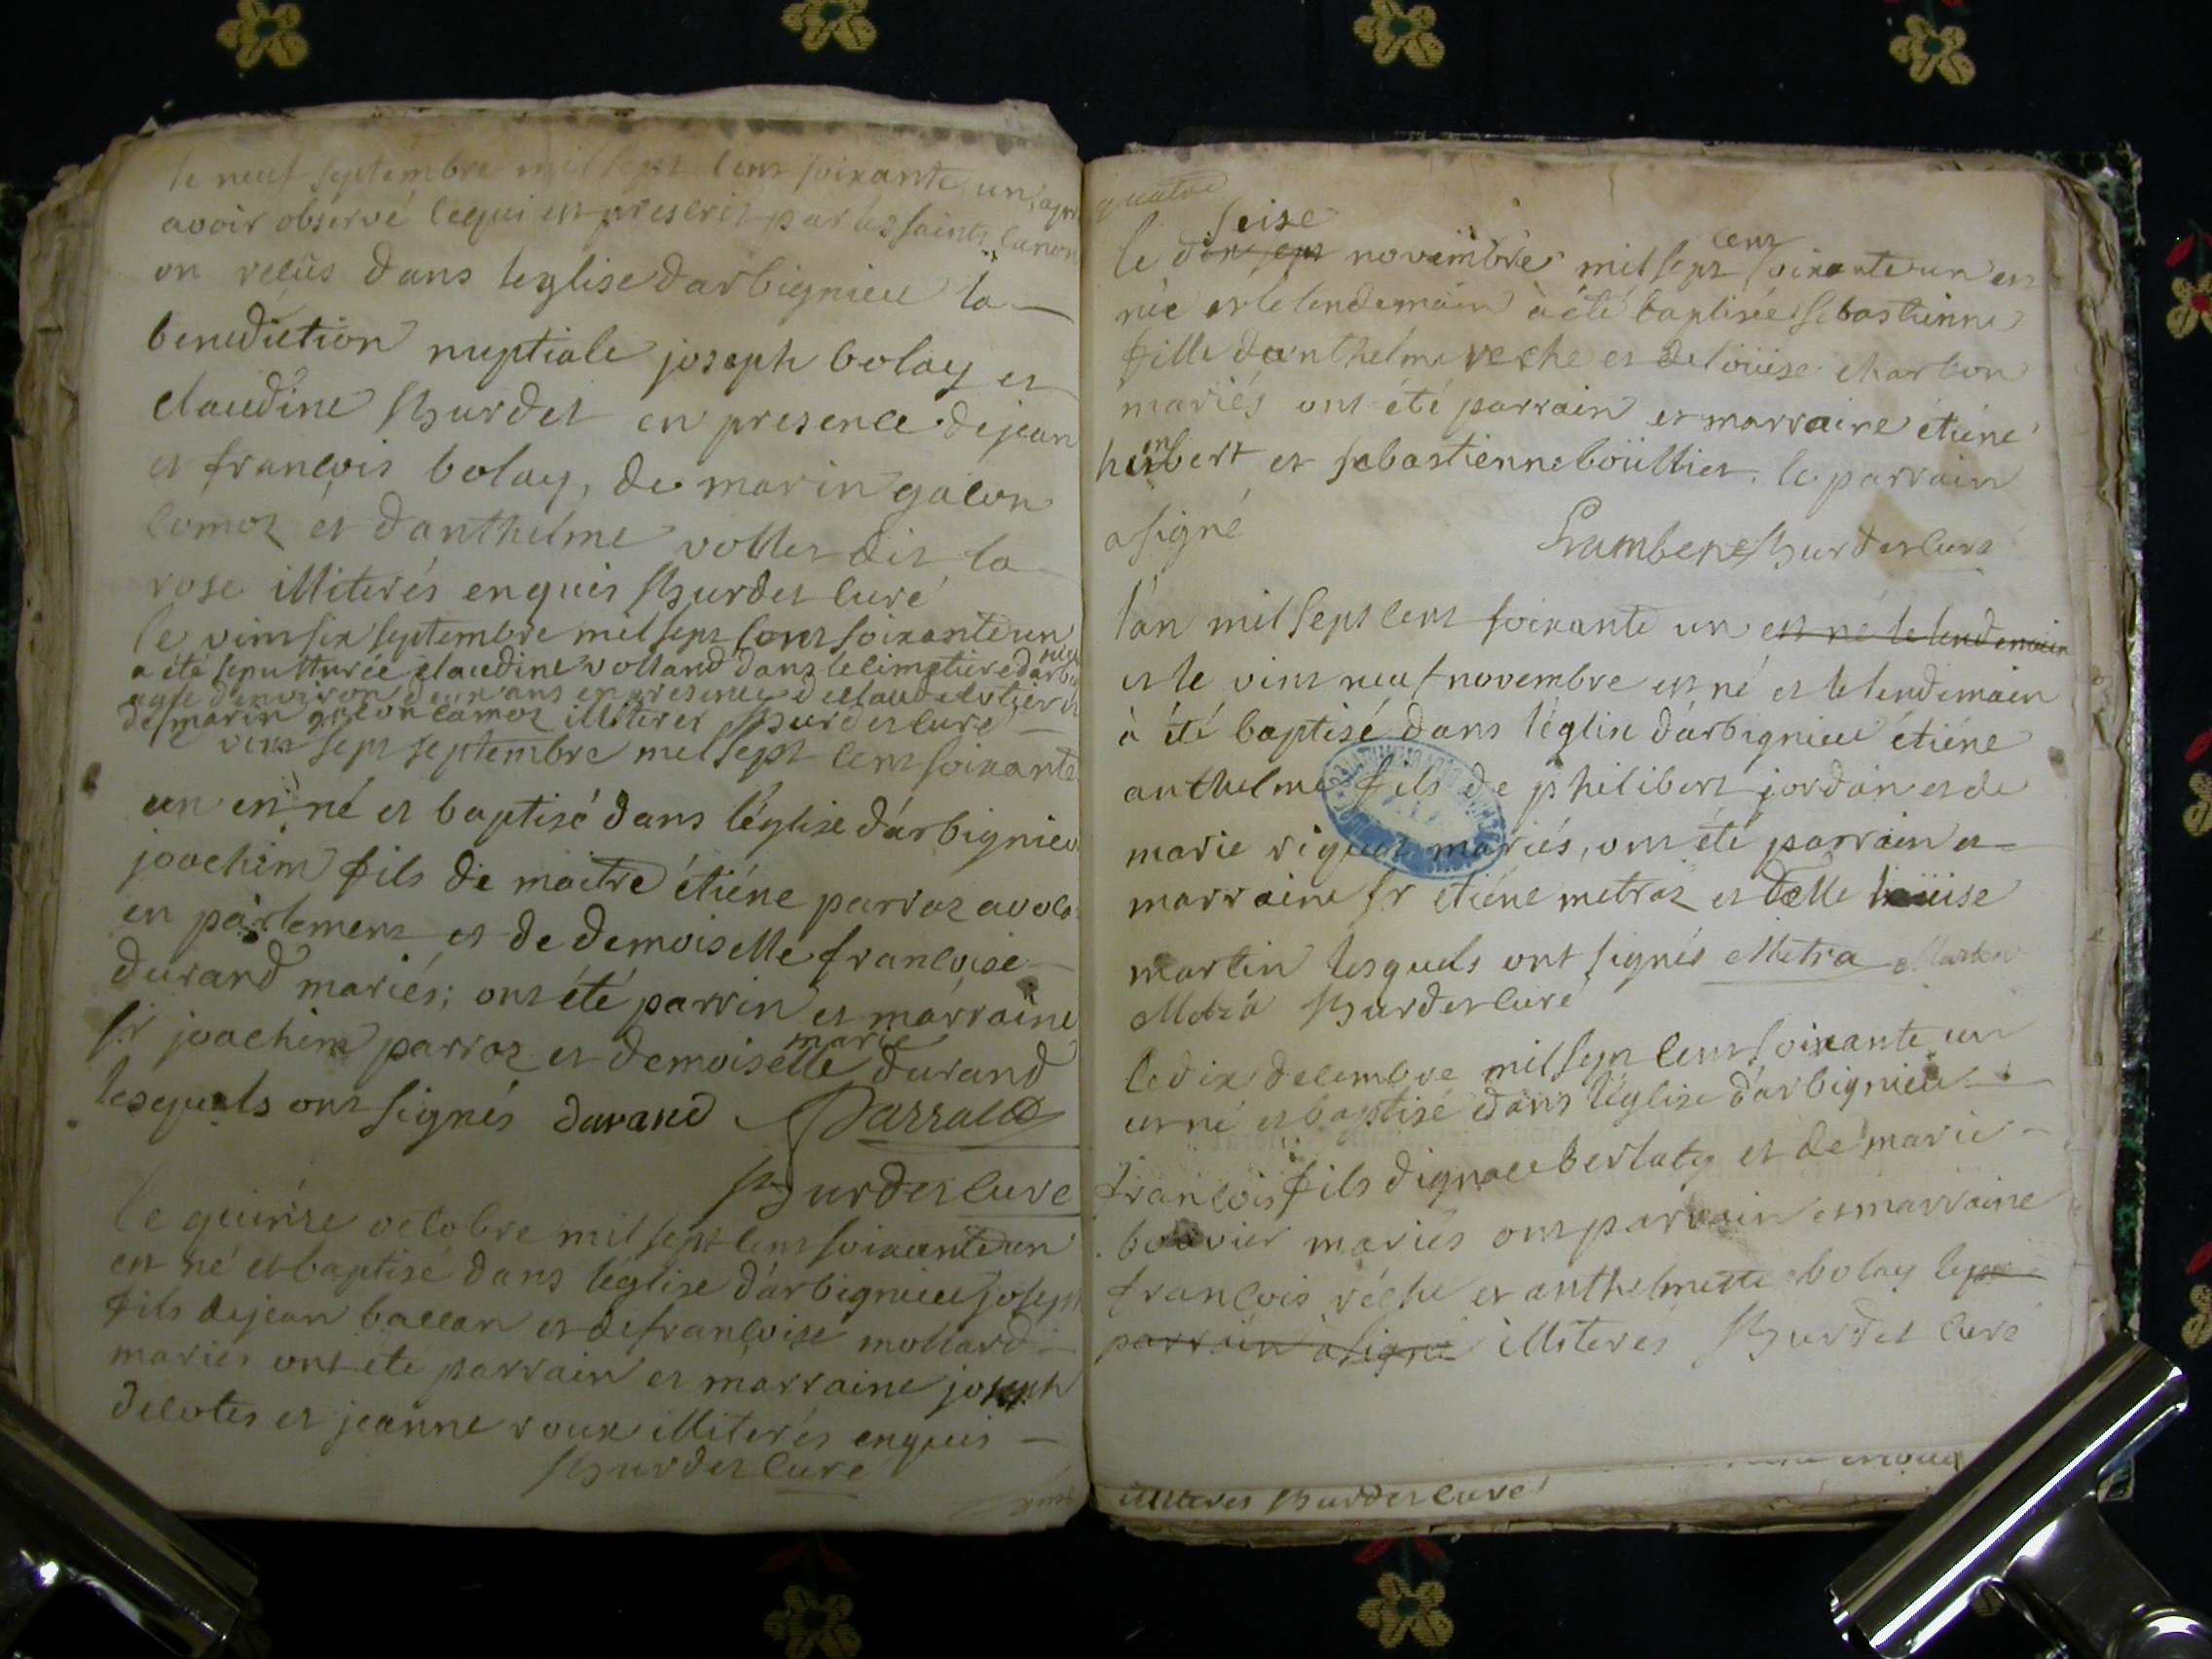 le neuf septembre mil sept cent soixante un, apr
avoir observé ce qui est prescrit par les saints canon
on reçûs dans leglise darbignieu la
benediction nuptiale joseph bolay et
claudine Burdet en presence de jean
et françois bolay, de marin galon
comoz et danthelme vollet dit la
rose illiterés enquis Burdet curé
le vint six septembre mil sept cent soixante un
a été sepulturée claudine volland dans le cimetiere darbi
agée denviron deux ans en presence de claude
de marin galon camoz illiterez Burdet curé
vint sept septembre mil sept cent soixante
un est né et baptisé dans léglise dárbignieu
joachim fils de maitre étiéne parraz avoca
en parlement et de demoiselle françoise
durand mariés; ont été parrin et márraine
sr joachim parraz et demoiselle marie durand
lesquels ont signés durand Parraz
Burdet curé
le quinze octobre mil sept cent soixante un
est né et baptisé dans léglise dárbignieu joseph
fils de jean ballan et de françoise mollard
mariés ont été parrain et marraine joseph
delotes et jeanne roux illiterés enquis
Burdet curé
quatre
seise
le dix sept novembre mil sept cent soixante un est
née et le lendemain à été baptisée sebastienne
fille danthelme reche et de loüise charbon
mariés ont été parrain et marraine étiéne
humbert et sebastienne boüllier. le parrain
a signé
humbert Burdet curé
lán mil sept cent soixante un est né le lendemain
et le vint neuf novembre est né et le lendemain
à été baptisé dans léglise dárbignieu étiéne
anthelme fils de philibert jordan et de
marie riquet mariés, ont été parrain et
marraine sr etiéne metraz et delle loüise
martin lesquels ont signés Metra Martin
Metra Burdet curé
le dix decembre mil sept cent soixante un
est né et baptisé dans léglise dárbignieu
françois fils dignace berlaty et de marie
bouvier mariés ont parrain et marraine
françois réche et anthelmette bolay le
parrain a signé illiterés Burdet curé
illiterés Burdet curé